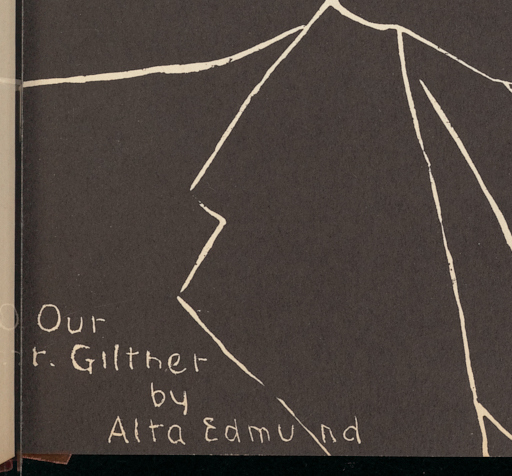 O Our
r. Giltner
by
Alta Edmund